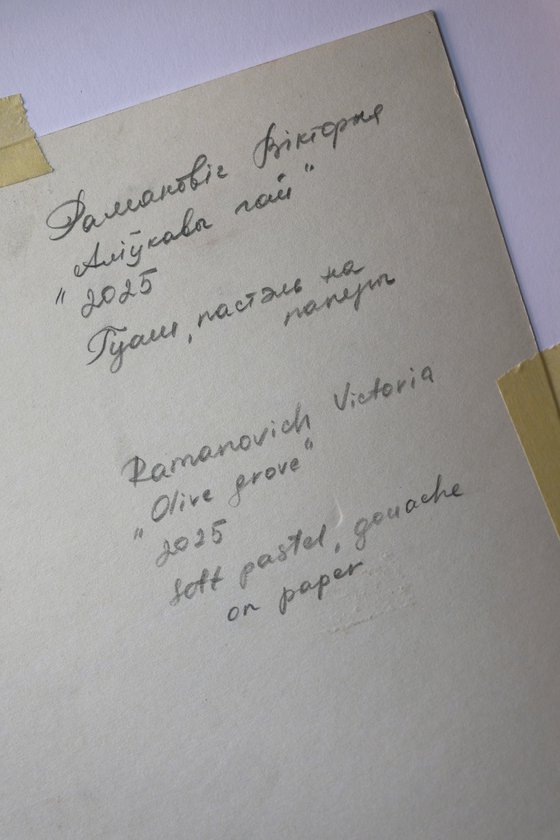 Рамановіч Вікторыя
"Аліўкавы гай"
2025
Гуаш, пастэль на
паперы
Ramanovich Victoria
"Olive grove"
2025
Soft pastel, gouache
on paper